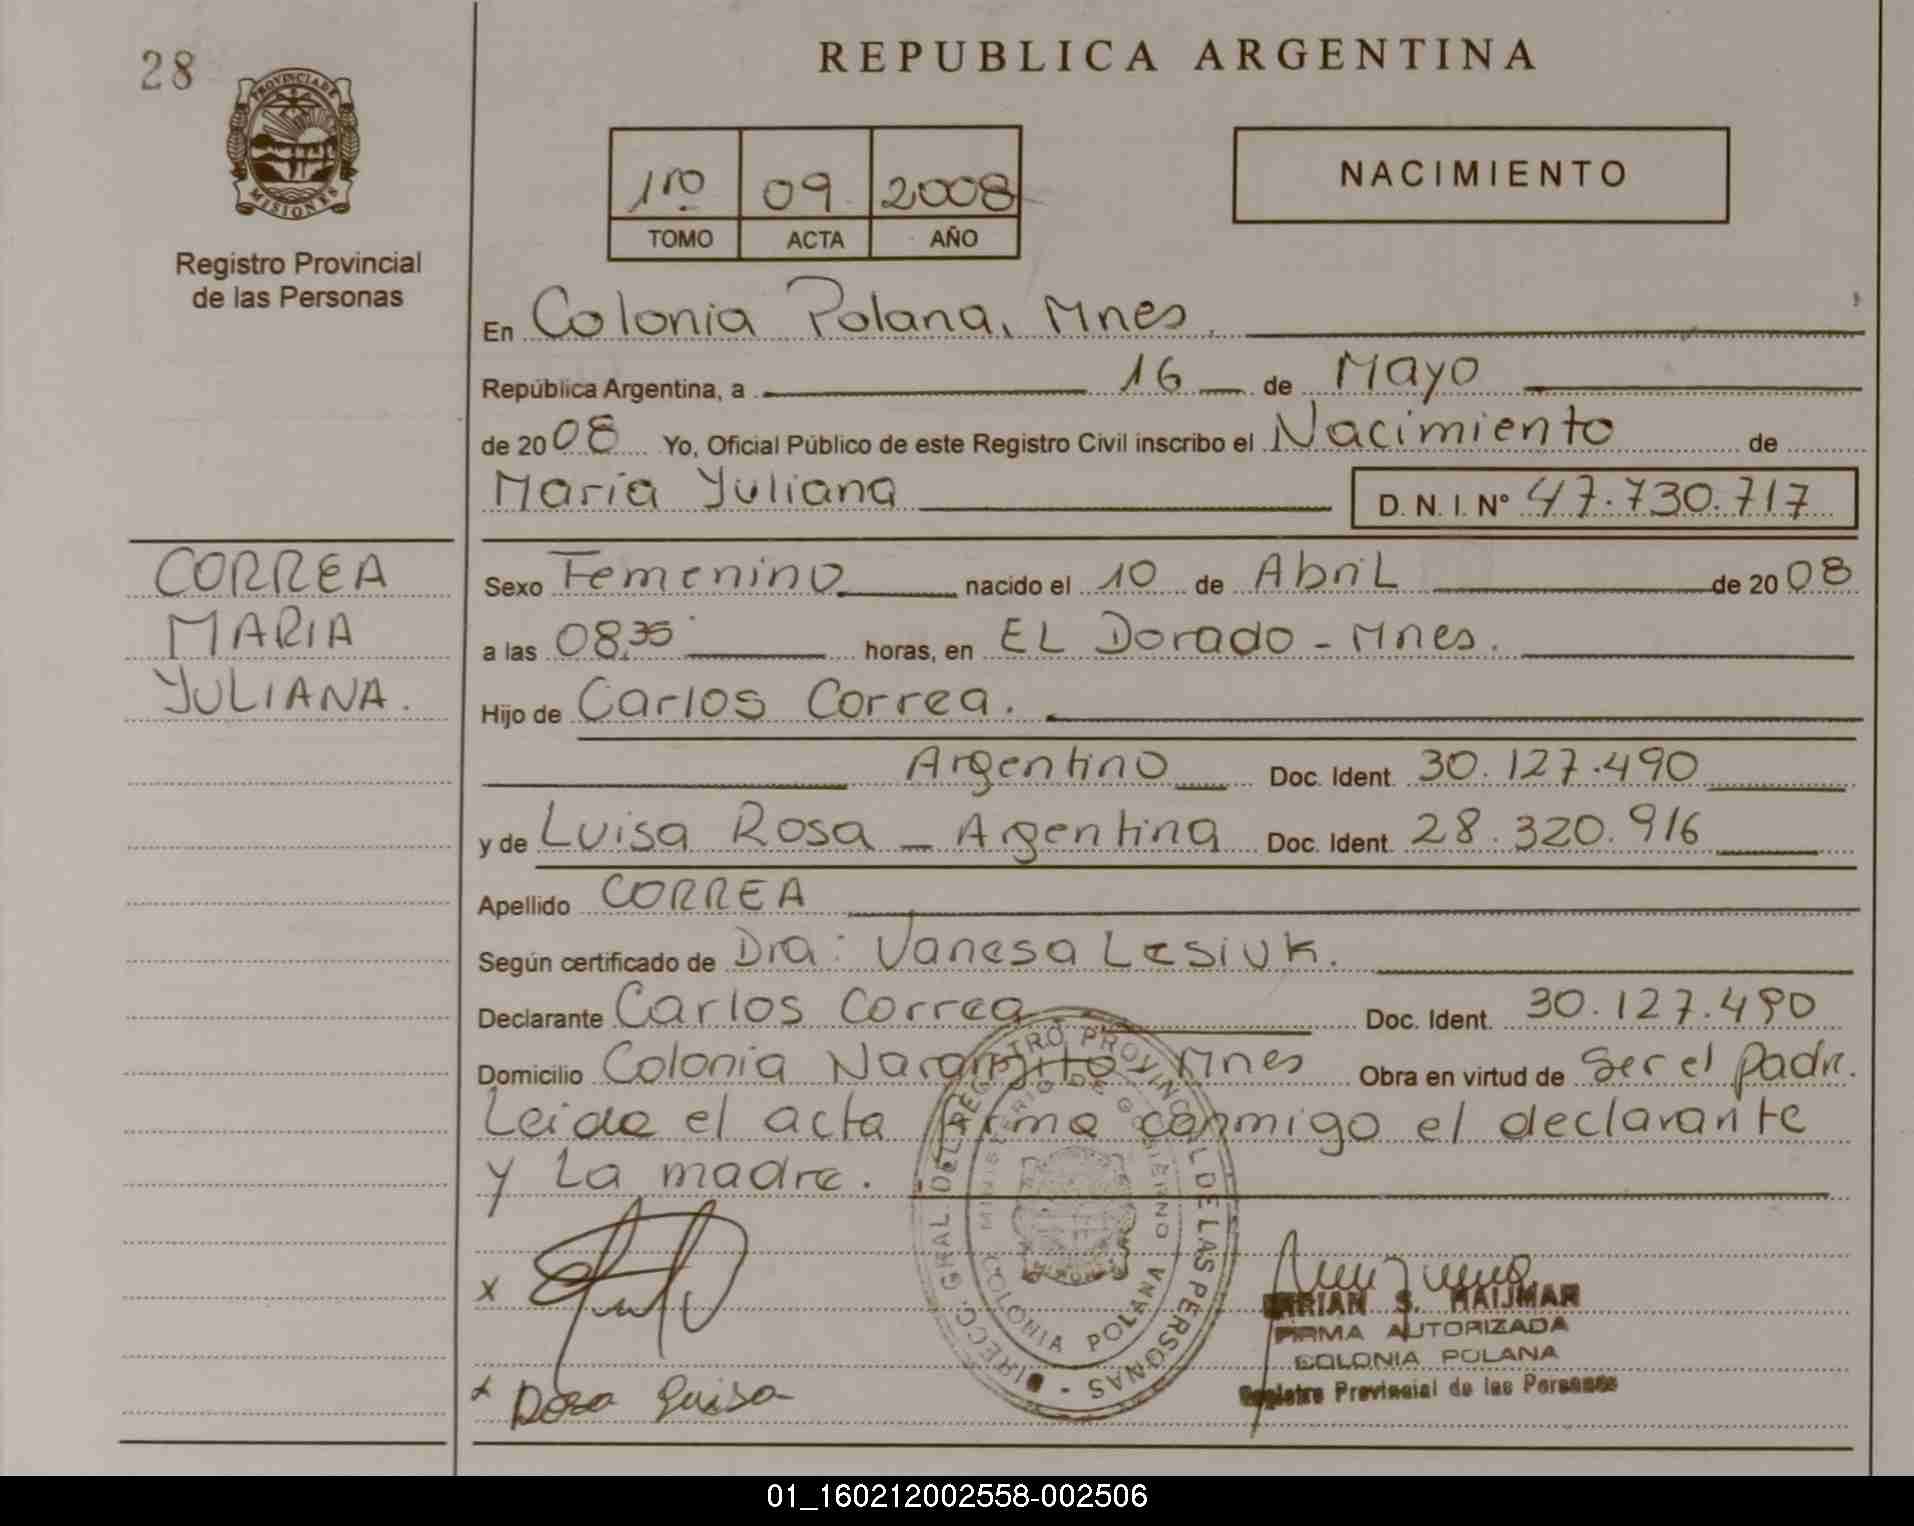 28
PROVINCIA DE
MISIONES
Registro Provincial
de las Personas
REPUBLICA ARGENTINA
1ro 09 2008
TOMO ACTA AÑO
NACIMIENTO
En Colonia Polana, Mnes.
República Argentina, a 16 de Mayo
de 2008 Yo, Oficial Público de este Registro Civil inscribo el Nacimiento de
Maria Yuliana D. N. I. Nº 47.730.717
CORREA
MARIA
YULIANA.
Sexo Femenino nacido el 10 de Abril de 2008
a las 08,35 horas, en EL Dorado - Mnes.
Hijo de Carlos Correa.
Argentino Doc. Ident. 30.127.490
y de Luisa Rosa - Argentina Doc. Ident. 28.320.916
Apellido CORREA
Según certificado de Dra: Vanesa Lesiuk.
Declarante Carlos Correa Doc. Ident. 30.127.490
Domicilio Colonia Naranjito - Mnes Obra en virtud de Ser el padre.
Leida el acta firma conmigo el declarante
y La madre.
DIRECC. GRAL. DEL REGISTRO PROVINCIAL DE LAS PERSONAS -
MINISTERIO DE GOBIERNO
COLONIA POLANA
x
x Rosa Luisa
S. HAIJMAR
FIRMA AUTORIZADA
COLONIA POLANA
Registro Provincial de las Personas
01_160212002558-002506